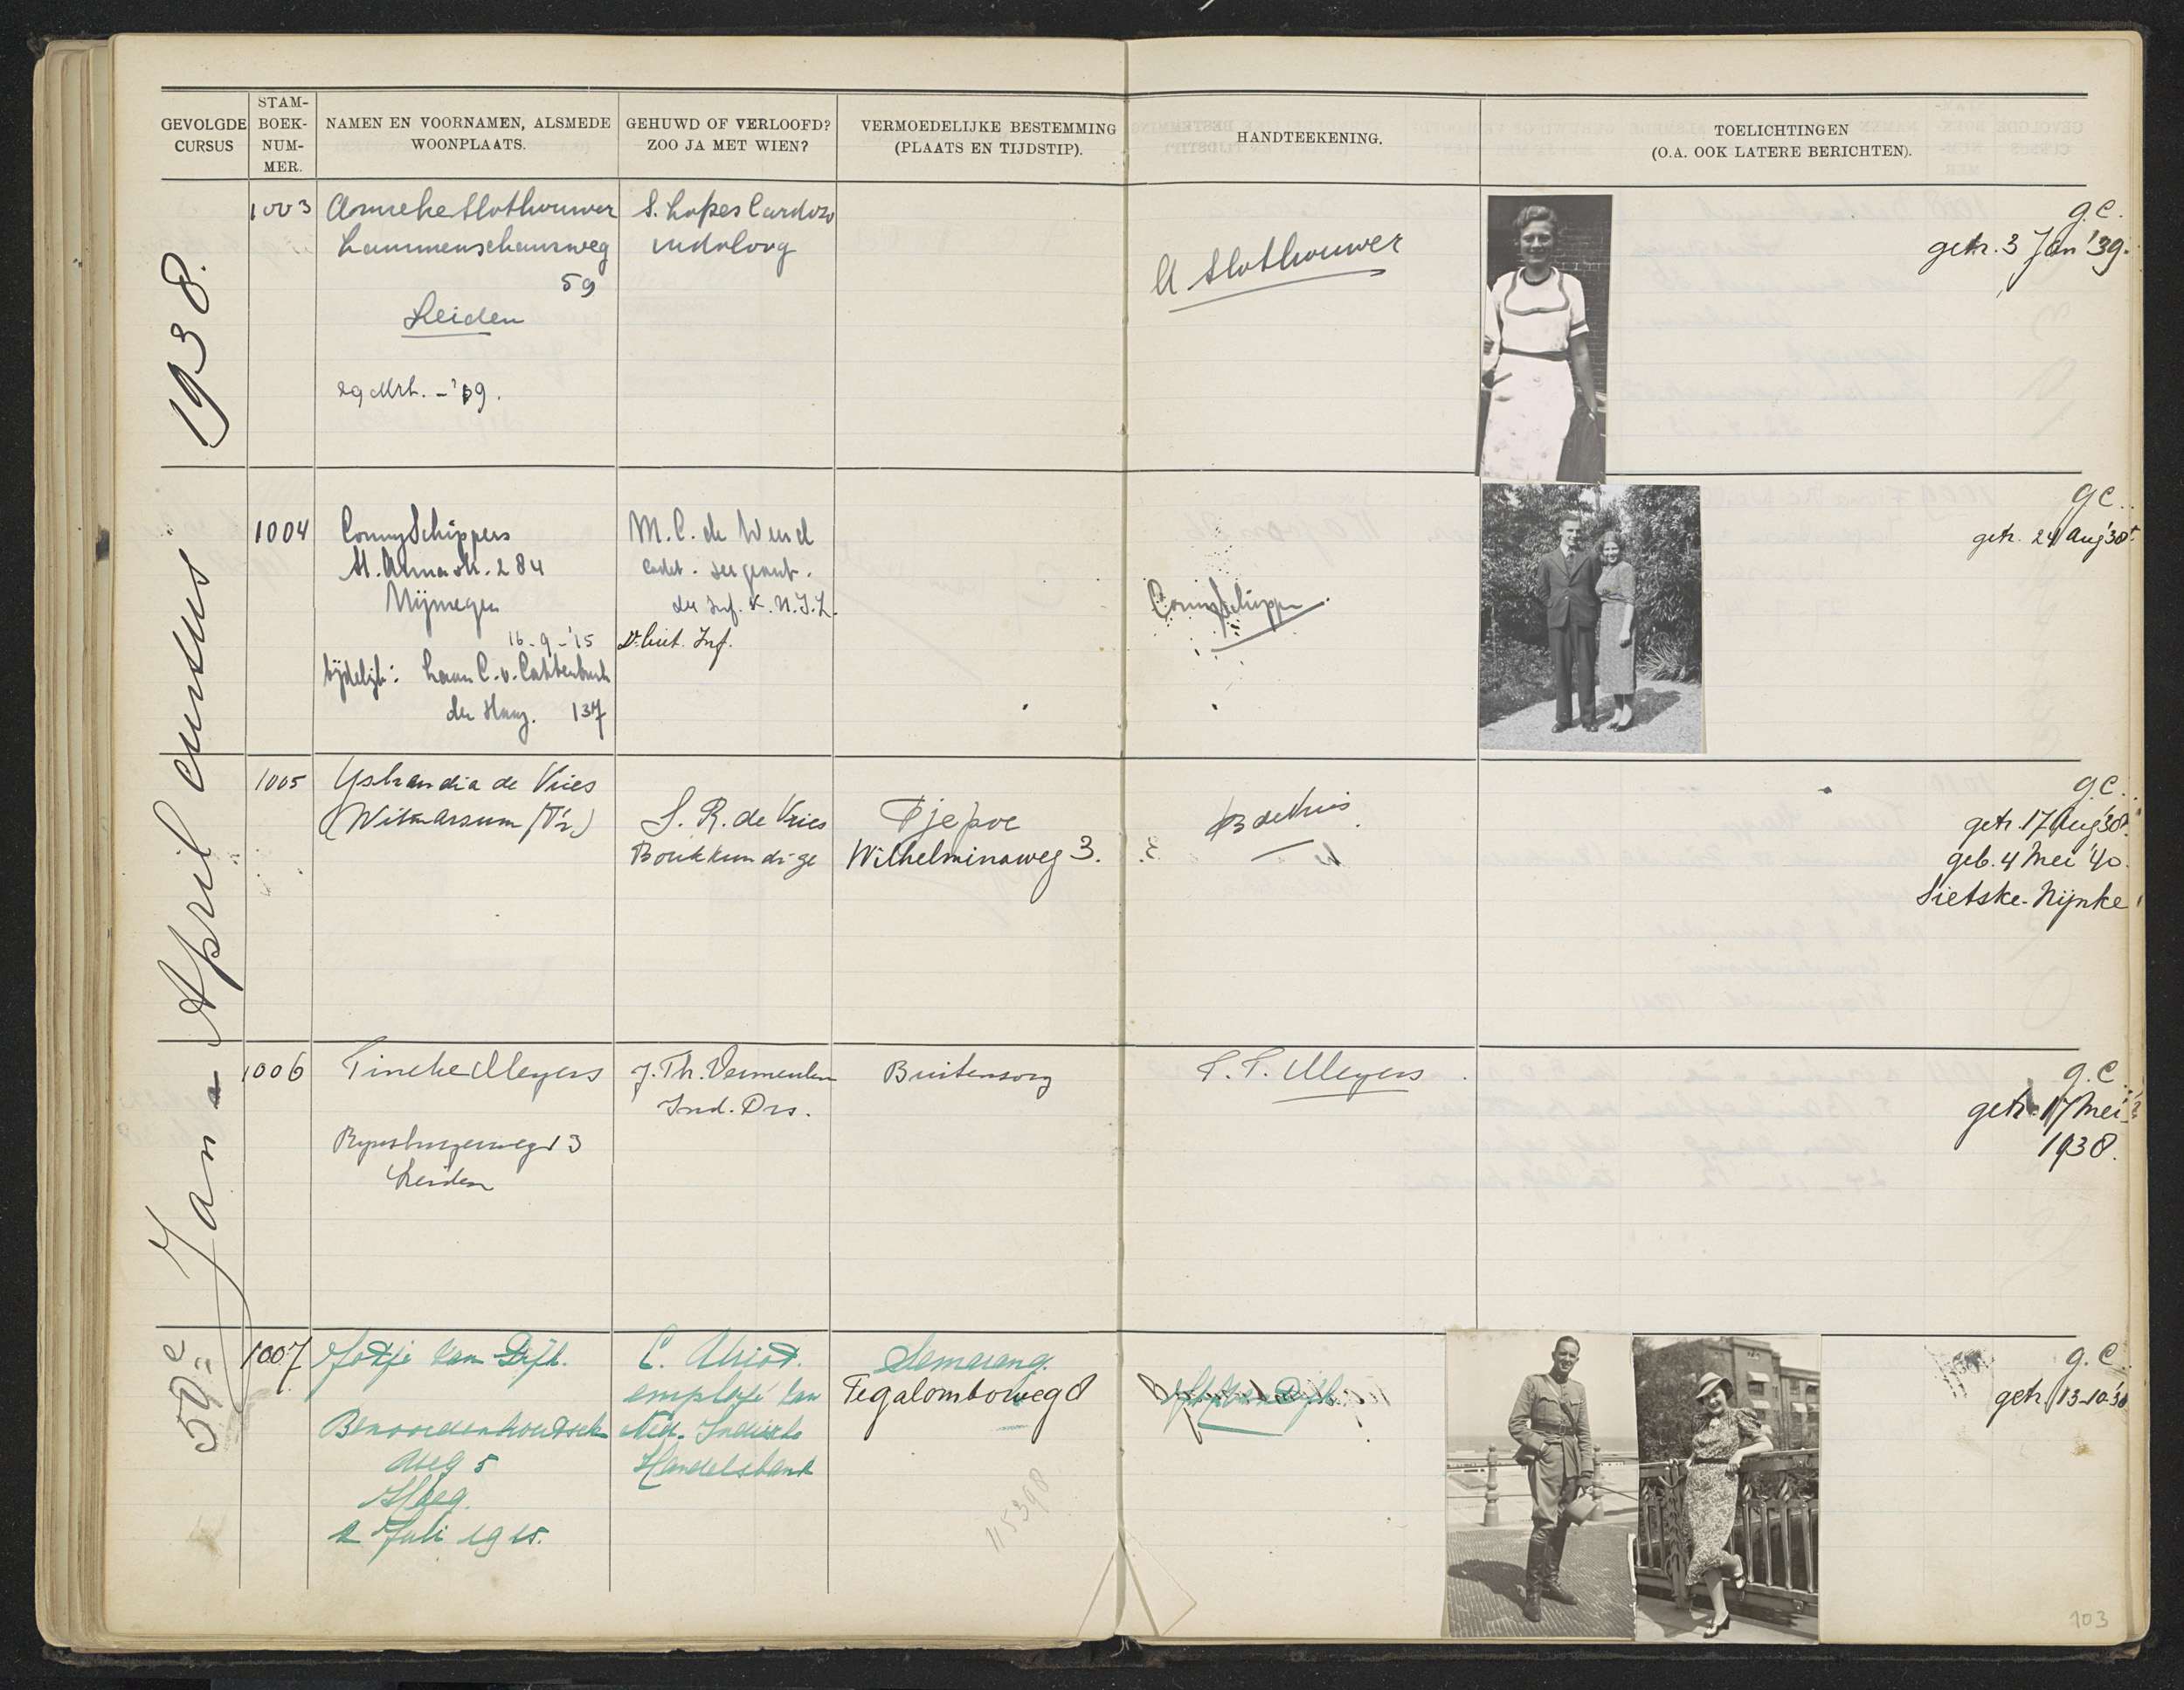 GEVOLGDE CURSUS
STAM-BOEK-NUM-MER.
NAMEN EN VOORNAMEN, ALSMEDE WOONPLAATS.
GEHUWD OF VERLOOFD? ZOO JA MET WIEN?
VERMOEDELIJKE BESTEMMING (PLAATS EN TIJDSTIP).
HANDTEEKENING.
TOELICHTINGEN (O.A. OOK LATERE BERICHTEN).
59e Jan - April cursus 1938.
1003
Anneke Slothouwer
Lammenschansweg
59
Leiden
29 Mrt. -'19.
S. Lopes Cardozo
indoloog
A Slothouwer
g.c.
getr. 3 Jan '39.
1004
Conny Schippers
St. Annastr. 284
Nijmegen
16-9-'15
tijdelijk: Laan C. v. Cattenburch
den Haag. 137
M. C. de
cadet-sergeant.
der Inf. K.N.I.L.
Luit. Inf.
Conny Schippers
g.c.
getr. 24 Aug '38
1005
Ysbrandia de Vries
Witmarsum (Fr.)
S. R. de Vries
Boukkundige
Tjepoe
Wilhelminaweg 3.
B de Vries
g.c.
getr. 17 Aug '38
geb. 4 Mei '40.
Sietske-Nijnke
1006
Tineke Meyers
Rijnsburgerweg 13
Leiden
J. Th. Vermeulen
Ind. Drs.
Buitenzorg
T. T. Meyers
g.c.
getr. 17 Mei
1938.
1007
van Dijk.
Benoordenhoutsche
weg 5
Haag.
2 Juli 1915.
C.
employé van
Ned. Indische
Handelsbank
Semarang.
Tegalomboweg 8
van Dijk.
g.c.
getr. 13-10-'38
115398
103